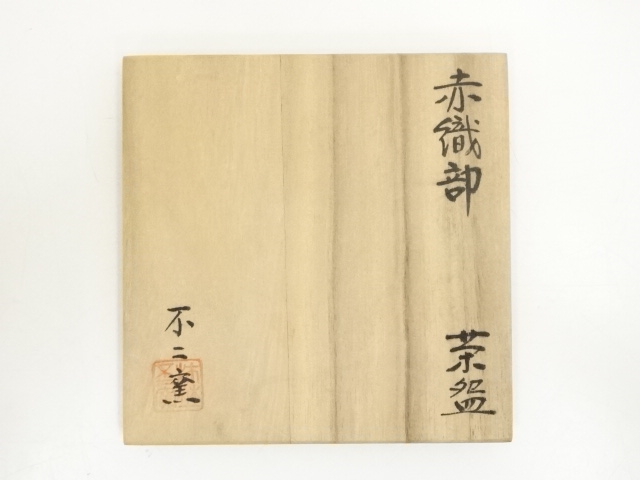 赤織部
茶盌
不二窯